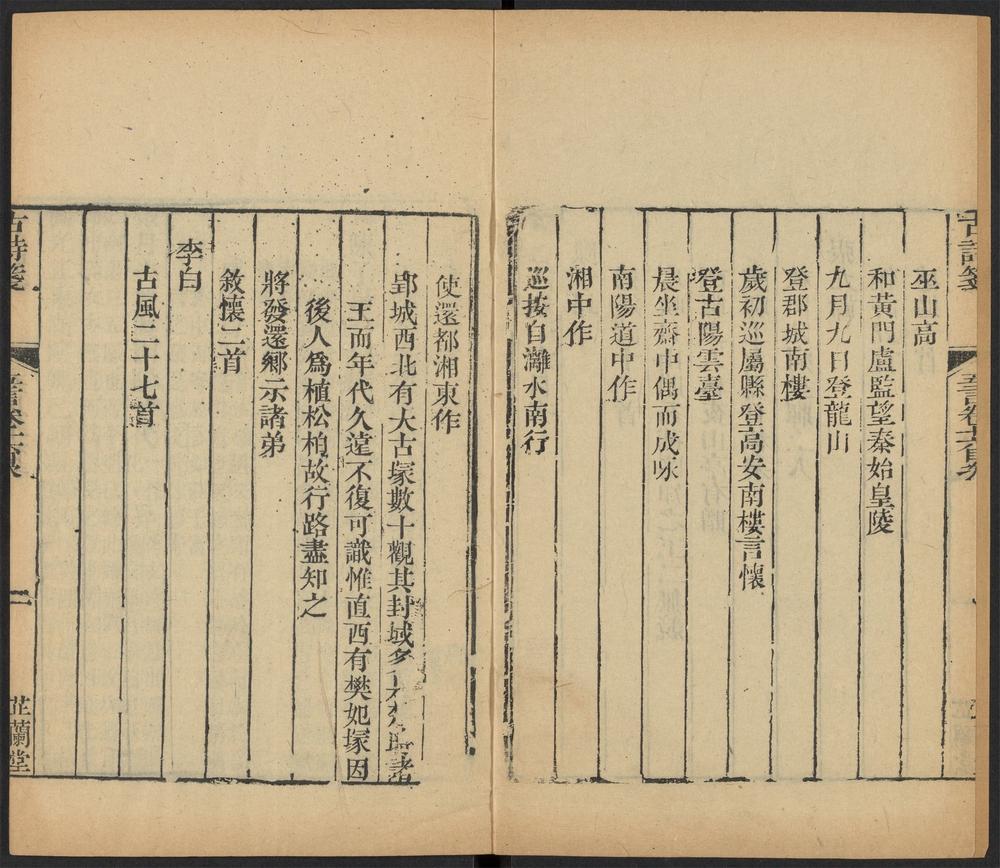 古詩箋
五言卷十六目录
巫山高
和黃門盧監望秦始皇陵
九月九日登龍山
登郡城南樓
歲初巡屬縣登高安南樓言懷
登古陽雲臺
晨坐齋中偶而成咏
南陽道中作
湘中作
巡按自灕水南行
使還都湘東作
郢城西北有大古塚數十觀其封域多諸
王而年代久遠不復可識惟直西有樊妃塚因
後人爲植松柏故行路盡知之
將發還鄉示諸弟
敘懷二首
李白
古風二十七首
古詩箋
五言卷十六
二
芷蘭堂